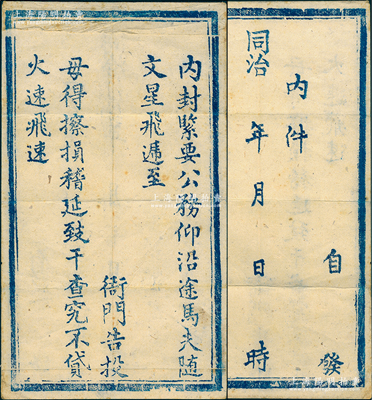 内封緊要公務仰沿途馬夫随
文星飛遞至
衙門告投
毋得擦損稽延致干查究不貸
火速飛速
自發
内件
同治 年 月 日 時